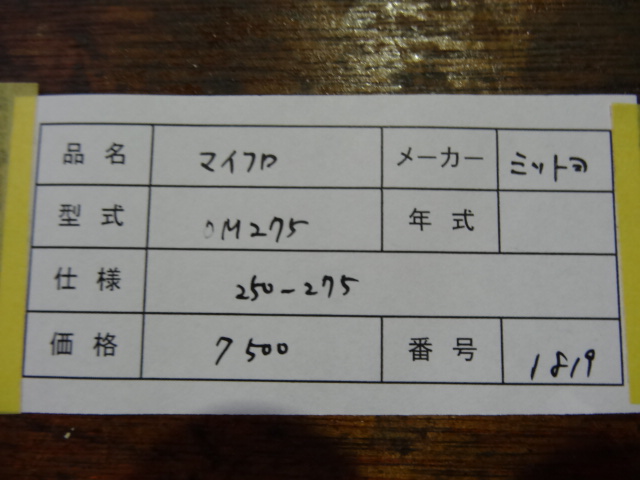 品名 マイフロ メーカー ミツトヨ
型式 OM275 年式
仕様 250-275
価格 7500 番号 1819